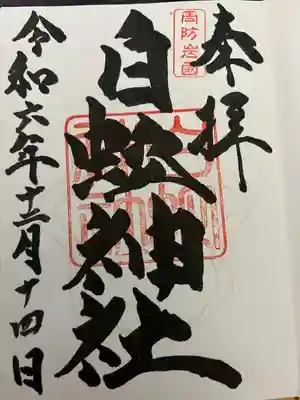 奉拝
周防岩国
白蛇神社
令和六年十二月十四日